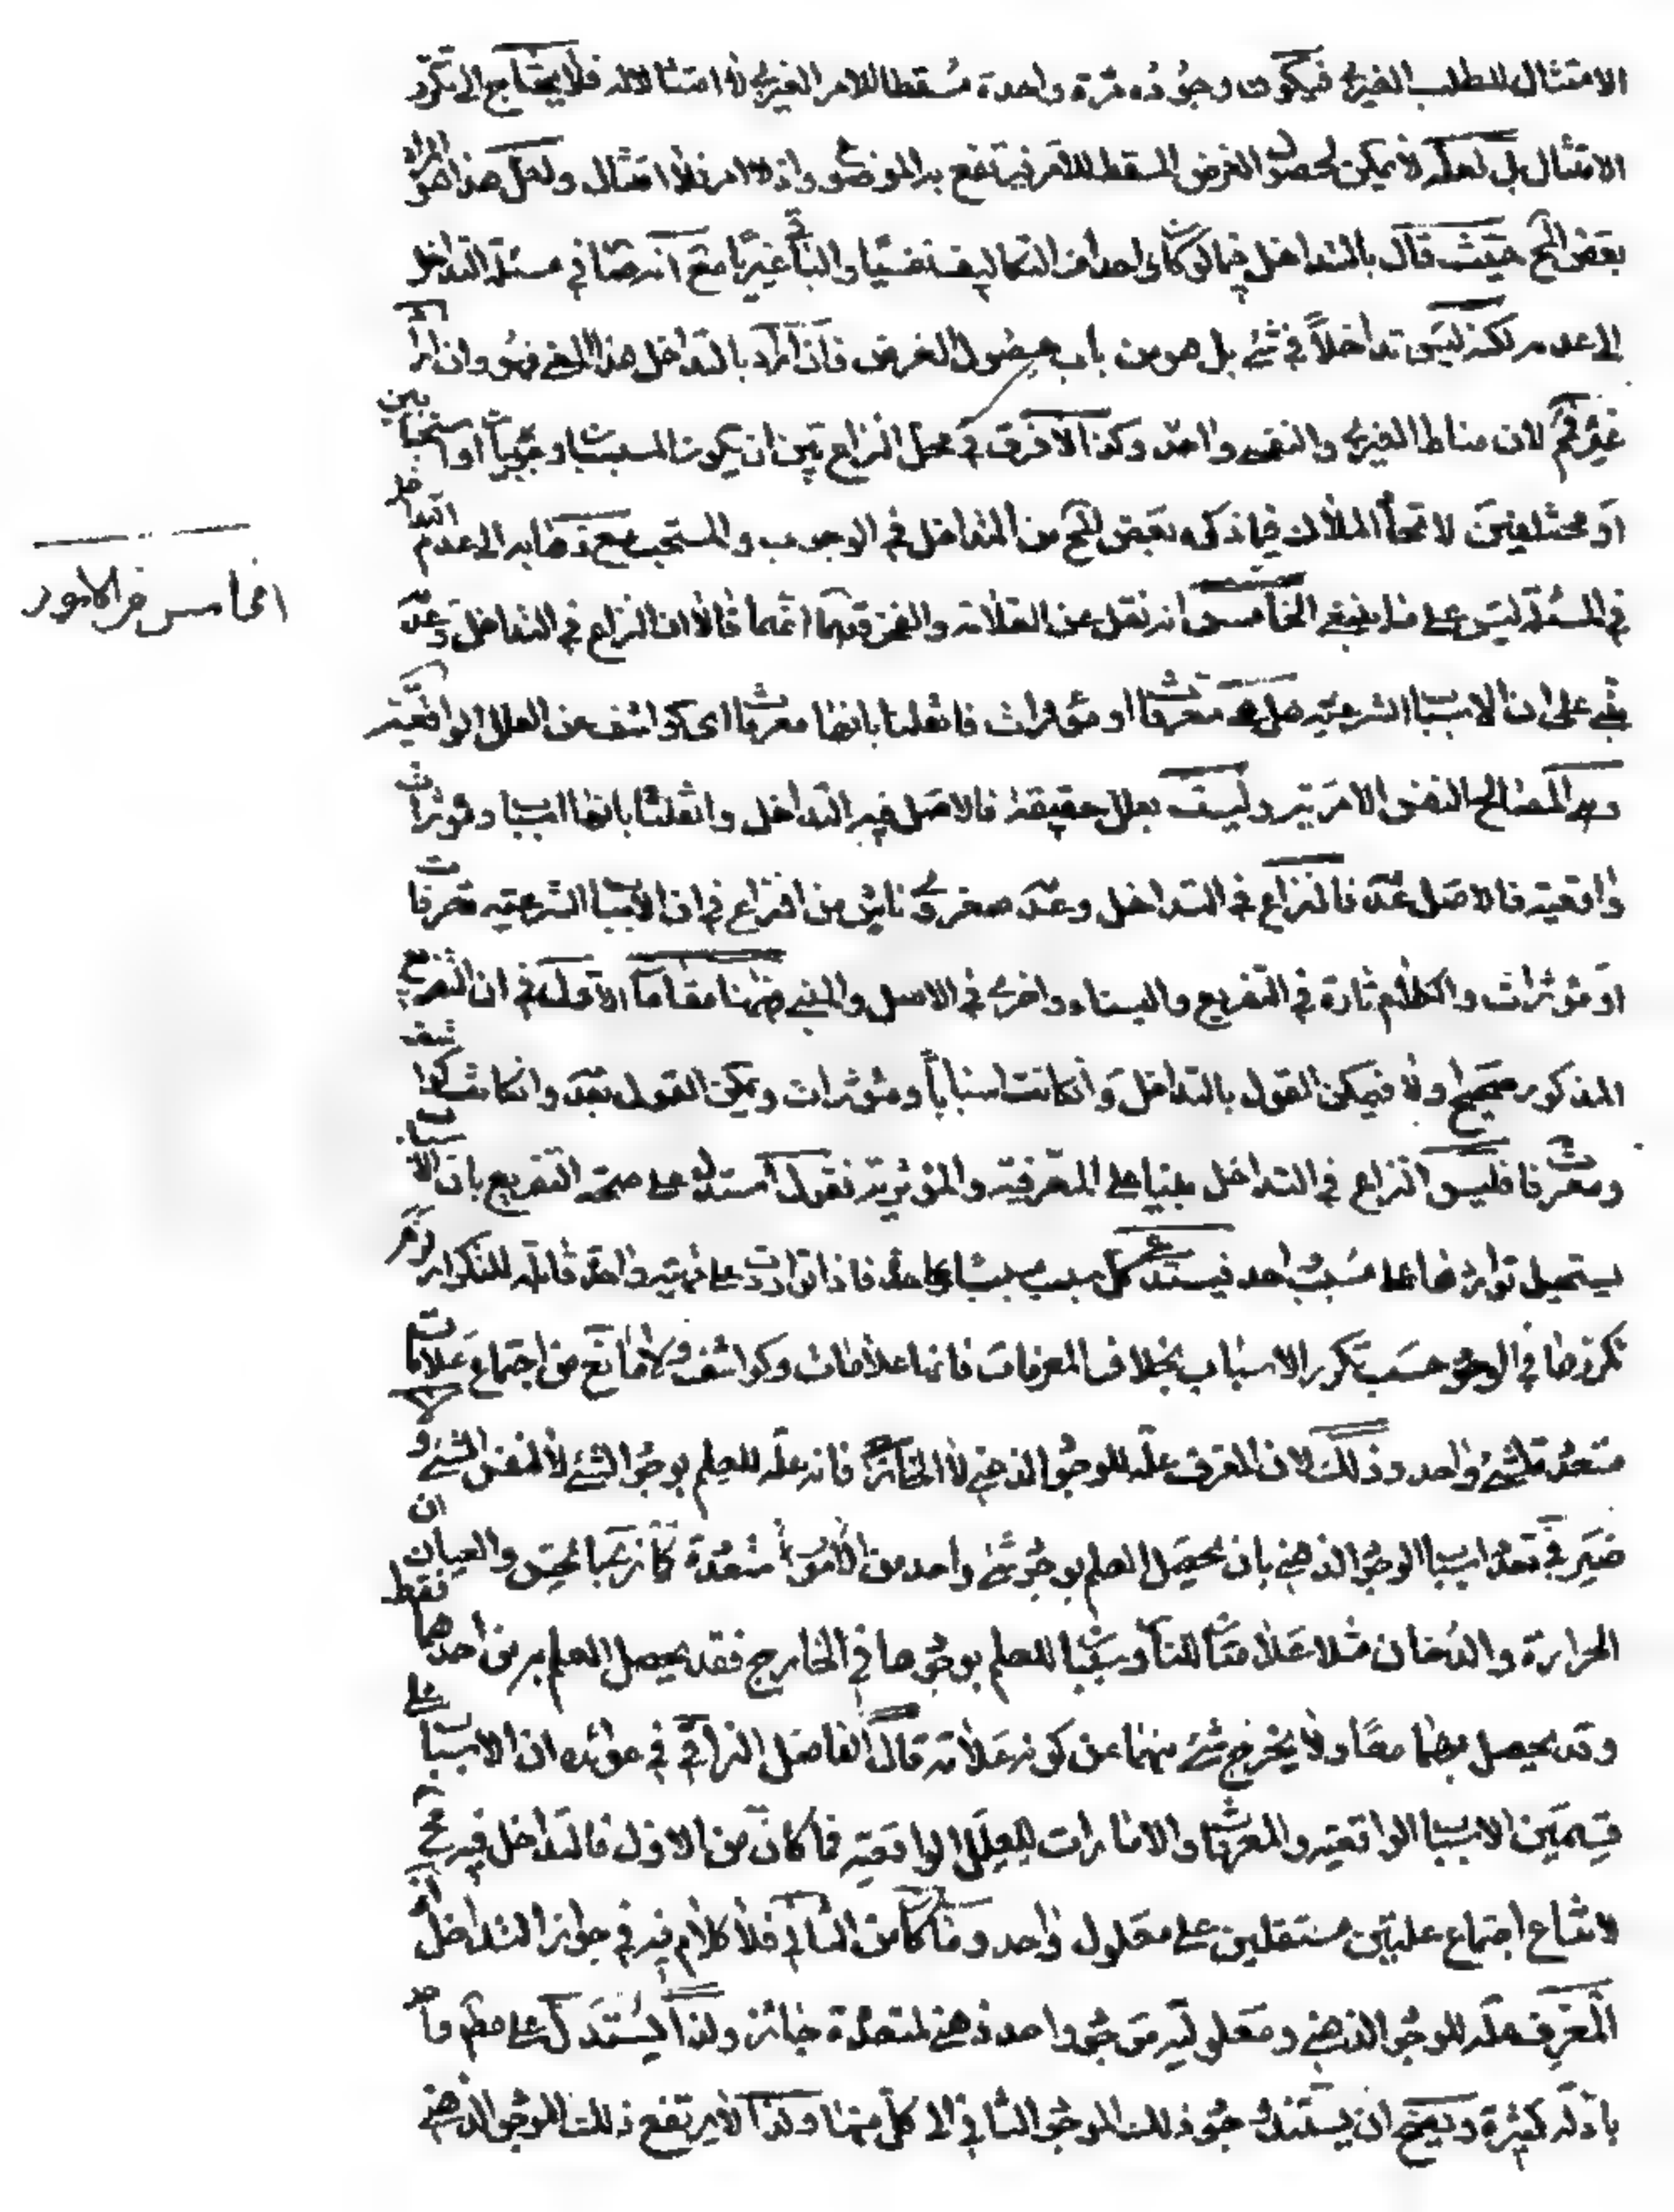 الامتثال للطلب الغيري فيكون وجوده مرة واحدة مسقطا للامر الغيري لا امتثالا له فلا يحتاج الى تكرر
الامتثال بل لعله لا يمكن لحصول الغرض المسقط للامر فيرتفع به الموضوع واذ لا امر فلا امتثال ولعل هذا هو مراد
بعض المح حيث قال بالتداخل فيما لو كان احد التكاليف نفسيا والباقي غيريا مع انه صار في مسئلة التداخل
الى عدمه لكنه ليس تداخلا في شئ بل هو من باب حصول الغرض فان اراد بالتداخل هذا المعنى فهو وان اراد
غيره فمم لان مناط الغيري والنفسي واحد وكذا لا فرق في محل النزاع بين ان يكون المسببات وجوبيات او استحبابيين
او مختلفين لاتحاد الملاك فما ذكره بعض المح من التداخل في الوجوب والمستحب مع ذهابه الى عدم التداخل
في المسئلة ليس على ما ينبغي الخامس انه نقل عن العلامة والفخر قدهما انهما قالا ان النزاع في التداخل وعدمه
مبني على ان الاسباب الشرعية هل هي معرفات او مؤثرات فان قلنا بانها معرفات اى كواشف عن العلل الواقعية
وهي المصالح النفس الامرية وليست بعلل حقيقة فالاصل فيه التداخل وان قلنا بانها اسباب ومؤثرات
واقعية فالاصل عدمه فالنزاع في التداخل وعدمه صغروي ناش من النزاع في ان الاسباب الشرعية معرفات
او مؤثرات والكلام تارة في التفريع والبناء واخرى في الاصل والمبنى فههنا مقامان الاول في ان التفريع
المذكور صحيح او لا فيمكن القول بالتداخل وان كانت اسبابا ومؤثرات ويمكن القول بعدمه وان كانت كواشف
ومعرفات فليس النزاع في التداخل مبنيا على المعرفية والمؤثرية فنقول استدل على صحة التفريع بان الاسباب
يستحيل تواردها على مسبب واحد فيستدعي كل سبب مسببا على حدة فاذا تواردت على مهية واحدة قابلة للتكرار لزم
تكررها في الوجود حسب تكرر الاسباب بخلاف المعرفات فانها علامات وكواشف ولا مانع من اجتماع علامات
متعددة لشئ واحد وذلك لان المعرف علة للوجود الذهني لا الخارجي فانه علة للعلم بوجود الشئ لا لنفس الشئ ولا
ضير في تعدد اسباب الوجود الذهني بان يحصل العلم بوجود شئ واحد من امور متعددة كما نرى بالحس والعيان ان
الحرارة والدخان مثلا علامتان للنار وسببان للعلم بوجودها في الخارج فقد يحصل العلم به من احدهما فقط
وقد يحصل بهما معا ولا يخرج شئ منهما عن كونه علامة قال الفاضل النراقي في عوائده ان الاسباب على
قسمين الاسباب الواقعية والمعرفات والامارات للعلل الواقعية فما كان من الاول فالتداخل فيه مح
لامتناع اجتماع علتين مستقلتين على معلول واحد وما كان من الثاني فلا كلام فيه في جواز التداخل اذ
المعرف علة للوجود الذهني ومعلولية موجود واحد ذهني لمتعددة جائز ولذا يستدل على حكم واحد
بادلة كثيرة ويصح ان يستند وجود ذلك الموجود الثاني الى كل منها ولذا لا يرتفع ذلك الموجود الذهني
الخامس من الامور